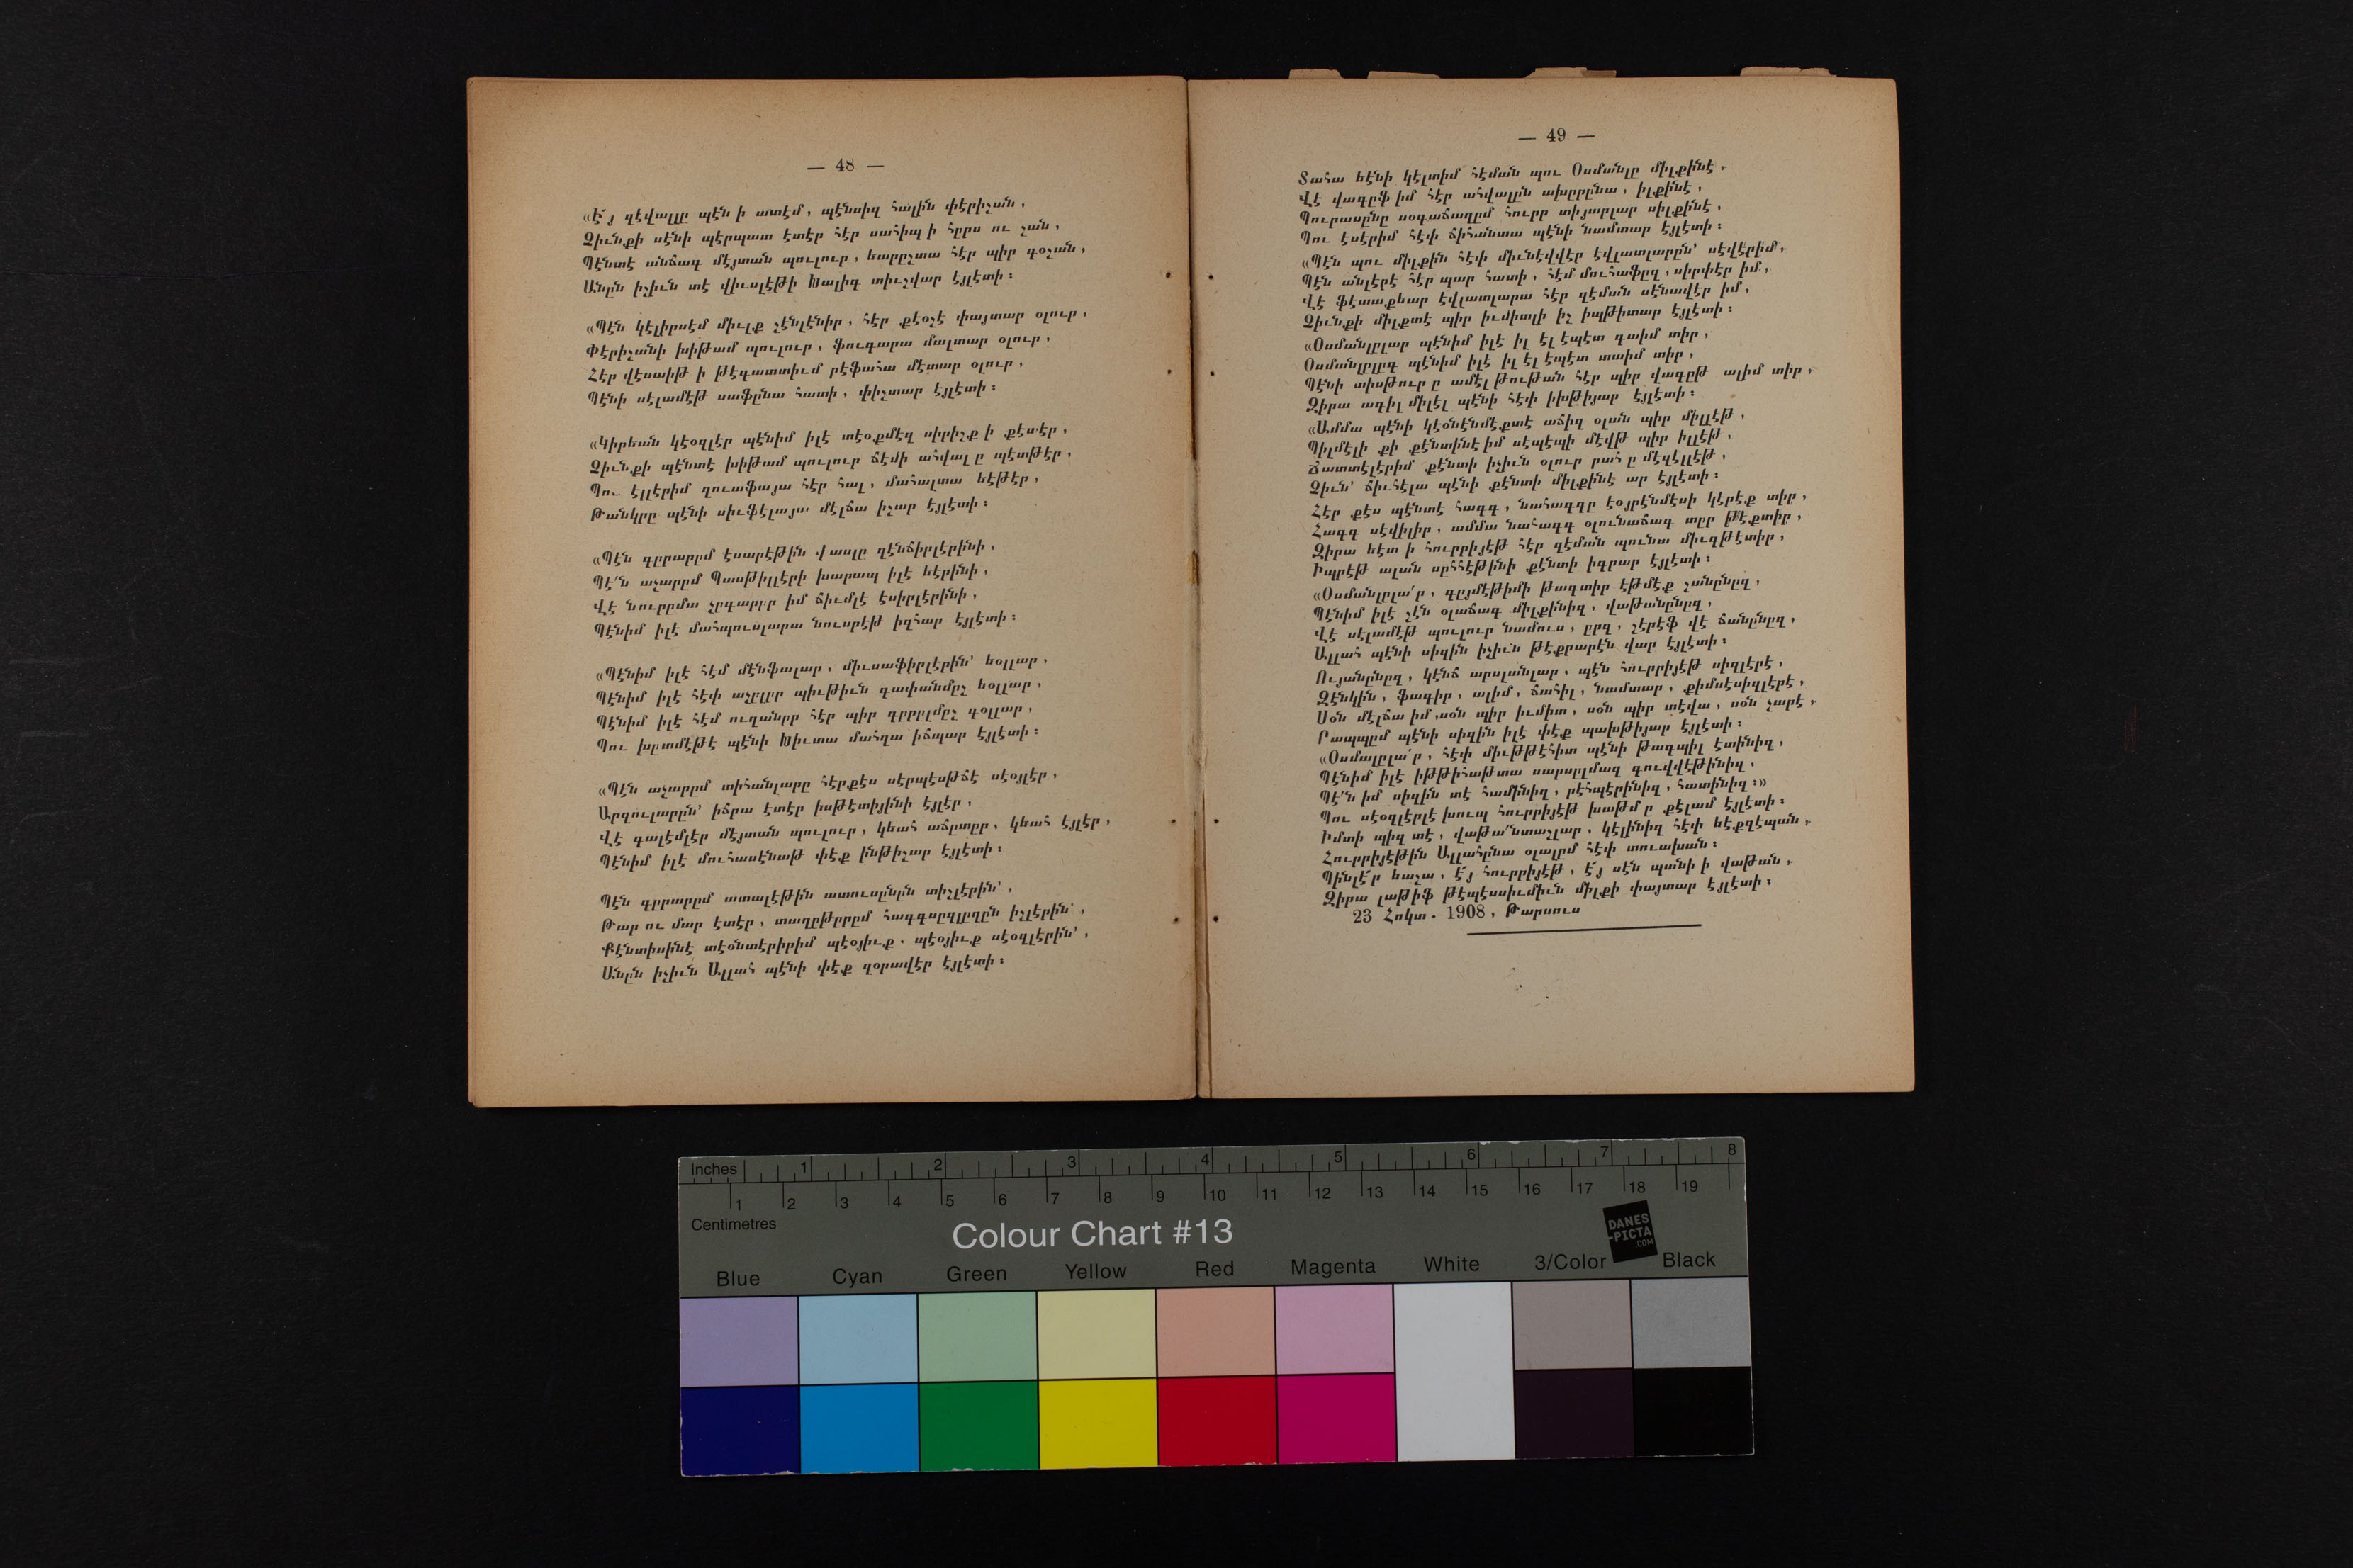 — 48 —
«Է՜յ զէվալլը պէն ի ատէմ, պէնսիզ հալին փէրիշան,
Զիւնքի սէնի պէրպատ էտէր հէր սահիպ ի հըրս ու շան,
Պէնտէ անճագ մէյտան պուլուր, եարըշտա հէր պիր գօշան,
Անըն իչիւն տէ վիւսլէթի Խալիգ տիւշվար էյլէտի։
«Պէն կէլիրսէմ միւլք շէնլէնիր, հէր քէօշէ փայտար օլուր,
Փէրիշանի խիթամ պուլուր, ֆուգարա մալտար օլուր,
Հէր վէսաիթ ի թէգատտիւմ րէֆահա մէտար օլուր,
Պէնի սէլամէթ սաֆընա հատի, փիշտար էյլէտի։
«Կիրեան կէօզլէր պէնիմ իլէ տէօքմէզ սիրիշք ի քէսէր,
Զիւնքի պէնտէ խիթամ պուլուր ճէմի ահվալ ը պէտթէր,
Պու էլլէրիմ զուաֆայա հէր հալ, մահալտա եէթէր,
Թանկրը պէնի սիւֆէլայա մէլճա իշար էյլէտի։
«Պէն գըրարըմ էսարէթին վասլը զէնճիրլէրինի,
Պէ՛ն աչարըմ Պասթիլլէրի խարապ իլէ եէրինի,
Վէ նուրըմա չըգարըր իմ ճիւմլէ էսիրլէրինի,
Պէնիմ իլէ մահպուսլարա նուսրէթ իզհար էյլէտի։
«Պէնիմ իլէ հէմ մէնֆալար, միւսաֆիրլէրին՝ եօլլար,
Պէնիմ իլէ հէփ աչըլըր պիւթիւն գափանմըշ եօլլար,
Պէնիմ իլէ հէմ ուզանըր հէր պիր գըրըլմըշ գօլլար,
Պու խըտմէթէ պէնի Խիւտա մահզա իճպար էյլէտի։
«Պէն աչարըմ տիհանլարը հէրքէս սէրպէսթճէ սէօյլէր,
Արզուլարըն՝ իճրա էտէր իսթէտիյինի էյլէր,
Վէ գալէմլէր մէյտան պուլուր, կեահ աճըտըր, կեահ էյլէր,
Պէնիմ իլէ մուհասէնաթ փէք ինթիշար էյլէտի։
Պէն գըրարըմ ատալէթին ատուսընըն տիշլէրին՝,
Թար ու մար էտէր, տաղըթըրըմ հագգսըզլըղըն իշլէրին՝,
Քէնտիսինէ տէօնտէրիրիմ պէօյիւք. պէօյիւք սէօզլէրին՝,
Անըն իչիւն Ալլահ պէնի փէք զօրավէր էյլէտի։
— 49 —
Տահա եէնի կէլտիմ հէման պու Օսմանլը միլքինէ,
Վէ վագըֆ իմ հէր ահվալըն ախըրընա, իլքինէ,
Պուրասընը սօգաճաղըմ հուրր տիյարլար սիլքինէ,
Պու էսէրիմ հէփ ճիհանտա պէնի նամտար էյլէտի։
«Պէն պու միլքին հէփ միւնէվվէր էվլատլարըն՝ սէվէրիմ,
Պէն անլէրէ հէր պար հատի, հէմ մուհաֆըզ, սիրփէր իմ,
Վէ ֆէտաքեար էվլատլարա հէր զէման սէնավէր իմ,
Զիւնքի միլքտէ պիր իւմիտլի իշ իպթիտար էյլէտի։
«Օսմանլըլար պէնիմ իլէ իլ էլ էպէտ գաիմ տիր,
Օսմանլըլըգ պէնիմ իլէ իլ էլ էպէտ տաիմ տիր,
Պէնի տիսթուր ը ամէլ թութան հէր պիր վագըթ ալիմ տիր,
Զիրա ագիլ միլէլ պէնի հէփ իխթիյար էյլէտի։
«Ամմա պէնի կէօնէնմէքտէ աճիզ օլան պիր միլլէթ,
Պիլմէլի քի քէնտինէ իմ սէպէպի մէվթ պիր իլլէթ,
Ճատտէլէրիմ քէնտի իչիւն օլուր րահ ը մէզէլլէթ,
Զիւն՝ ճիւհէլա պէնի քէնտի միլքինէ ար էյլէտի։
Հէր քէս պէնտէ հագգ, նահագգը էօյրէնմէսի կէրէք տիր,
Հագգ սէվիլիր, ամմա նահագգ օլունաճագ տըր թէքտիր,
Զիրա եէտ ի հուրրիյէթ հէր զէման պունա միւգթէտիր,
Իպրէթ ալան սըհհէթինի քէնտի իգրար էյլէտի։
«Օսմանլըլա՛ր, գըյմէթիմի թագտիր էթմէք շանընըզ,
Պէնիմ իլէ շէն օլաճագ միլքինիզ, վաթանընըզ,
Վէ սէլամէթ պուլուր նամուս, ըրզ, շէրէֆ վէ ճանընըզ,
Ալլահ պէնի սիզին իչիւն թէքրարէն վար էյլէտի։
Ույանընըզ, կէնճ արսլանլար, պէն հուրրիյէթ սիզլէրէ,
Զէնկին, ֆագիր, ալիմ, ճահիլ, նամտար, քիմսէսիզլէրէ,
Սօն մէլճա իմ, սօն պիր իւմիտ, սօն պիր տէվա, սօն չարէ,
Րապպըմ պէնի սիզին իլէ փէք պախթիյար էյլէտի։
«Օսմալըլա՛ր, հէփ միւթթէհիտ պէնի թագպիլ էտինիզ,
Պէնիմ իլէ իթթիհաթտա սարսըլմազ գուվվէթինիզ,
Պէ՛ն իմ սիզին տէ համինիզ, րէհպէրինիզ, հատինիզ։»
Պու սէօզլէրլէ խուպ հուրրիյէթ խաթմ ը քէլամ էյլէտի։
Իմտի պիզ տէ, վաթա՛նտաշլար, կէլինիզ հէփ եէքզէպան,
Հուրրիյէթին Ալլահընա օլալըմ հէփ տուախան։
Պինլէ՛ր եաշա, է՜յ հուրրիյէթ, է՜յ սէն պանի ի վաթան,
Զիրա լաթիֆ թէպէսսիւմիւն միլքի փայտար էյլէտի։
23 Հոկտ. 1908, Թարսուս
Inches 1 2 3 4 5 6 7 8
1 2 3 4 5 6 7 8 9 10 11 12 13 14 15 16 17 18 19
Centimetres
Colour Chart #13
DANES
-PICTA
.COM
Blue Cyan Green Yellow Red Magenta White 3/Color Black